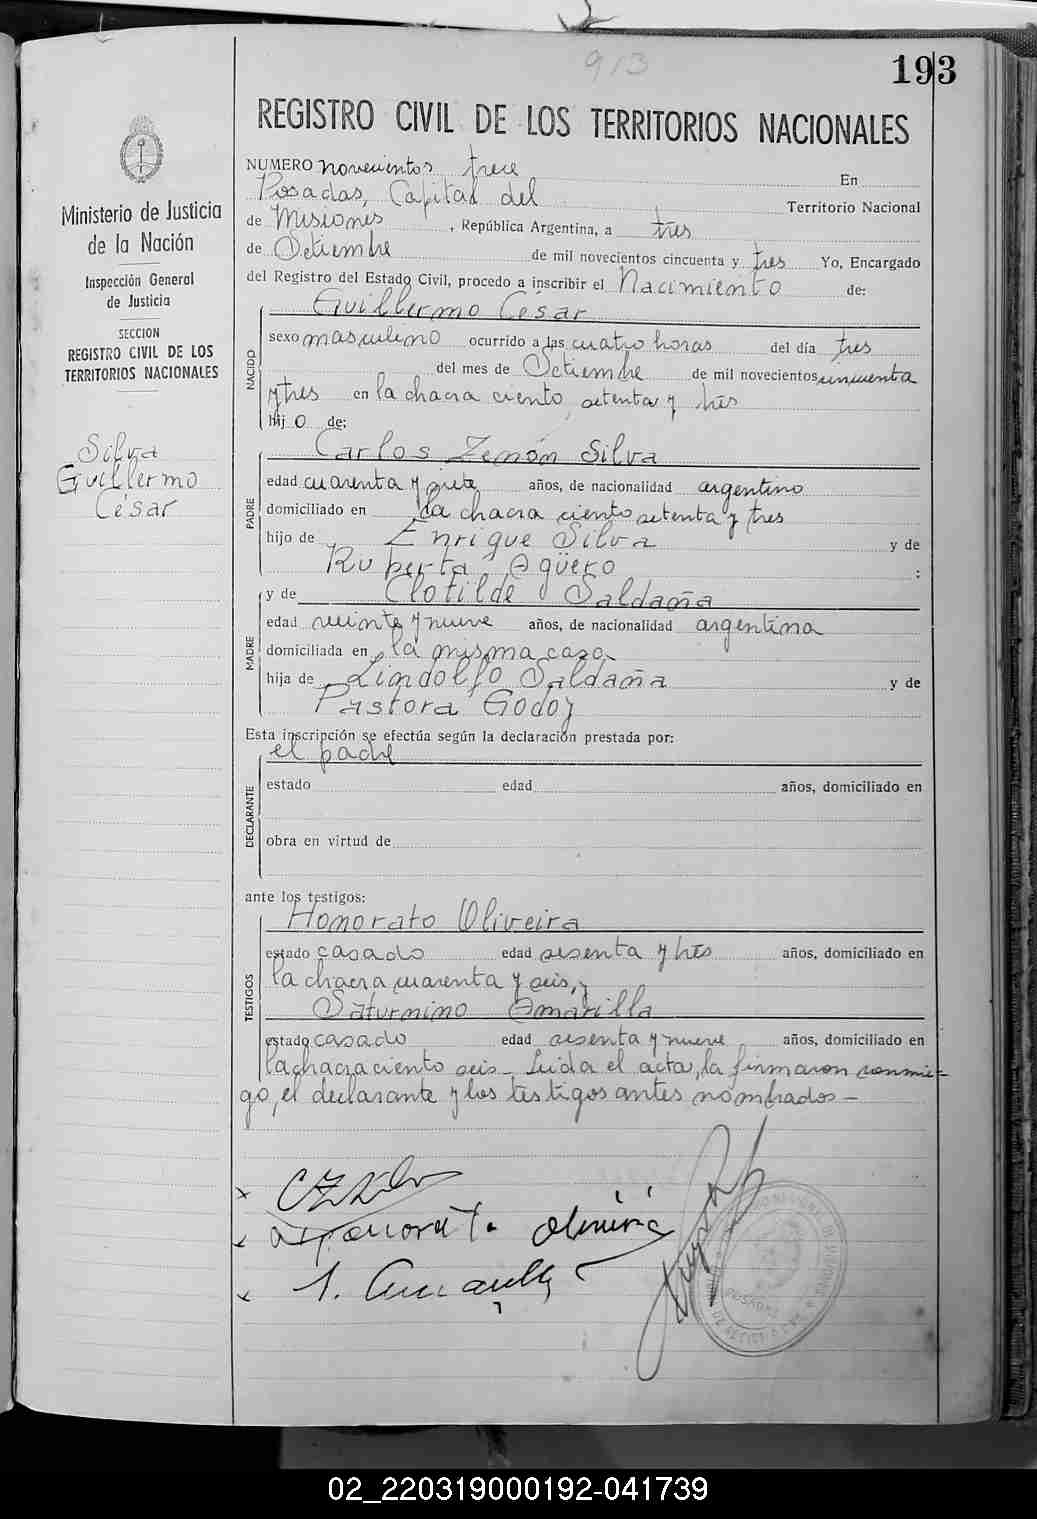 913
193
REGISTRO CIVIL DE LOS TERRITORIOS NACIONALES
Ministerio de Justicia
de la Nación
Inspección General
de Justicia
SECCION
REGISTRO CIVIL DE LOS
TERRITORIOS NACIONALES
Silva
Guillermo
César
NUMERO novecientos trece En
Posadas, Capital del Territorio Nacional
de Misiones, República Argentina, a tres
de Setiembre de mil novecientos cincuenta y tres Yo, Encargado
del Registro del Estado Civil, procedo a inscribir el Nacimiento de:
Guillermo César
NACIDO
sexo masculino ocurrido a las cuatro horas del día tres
del mes de Setiembre de mil novecientos cincuenta
y tres en la chacra ciento setenta y trés
hijo de:
Carlos Zenón Silva
PADRE
edad cuarenta y siete años, de nacionalidad argentino
domiciliado en la chacra ciento setenta y tres
hijo de Enrique Silva y de
Ruperta Agüero :
y de Clotilde Saldaña
MADRE
edad veinte y nueve años, de nacionalidad argentina
domiciliada en la misma casa
hija de Lindolfo Saldaña y de
Pastora Godoy
Esta inscripción se efectúa según la declaración prestada por:
el padre
DECLARANTE
estado edad años, domiciliado en
obra en virtud de
ante los testigos:
Honorato Oliveira
TESTIGOS
estado casado edad sesenta y trés años, domiciliado en
la chacra cuarenta y seis, y
Saturnino Amarilla
estado casado edad sesenta y nueve años, domiciliado en
la chacra ciento seis - Leída el acta, la firmaron conmi-
go, el declarante y los testigos antes nombrados -
POSADAS
02_220319000192-041739